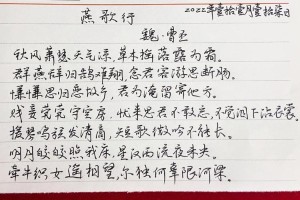 燕歌行
2022年壹拾壹月壹拾柒日
魏·曹丕
秋风萧瑟天气凉,草木摇落露为霜。
群燕辞归鹄南翔,念君客游思断肠。
慊慊思归恋故乡,君为淹留寄他方。
贱妾茕茕守空房,忧来思君不敢忘,不觉泪下沾衣裳。
援琴鸣弦发清商,短歌微吟不能长。
明月皎皎照我床,星汉西流夜未央。
牵牛织女遥相望,尔独何辜限河梁。